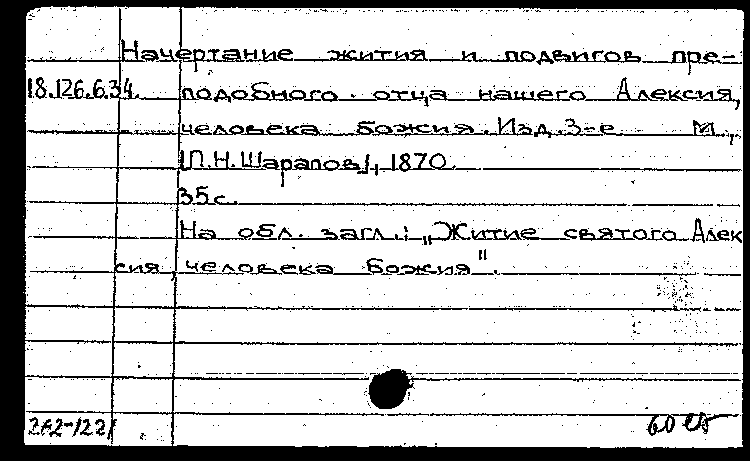 Начертание жития и подвигов пре-
18.126.6.34. подобного отца нашего Алексия,
человека божия. Изд. 3-е М.,
[П.Н. Шарапов], 1870.
35с.
На обл. загл.: „Житие святого Алек
сия, человека Божия".
262-1221